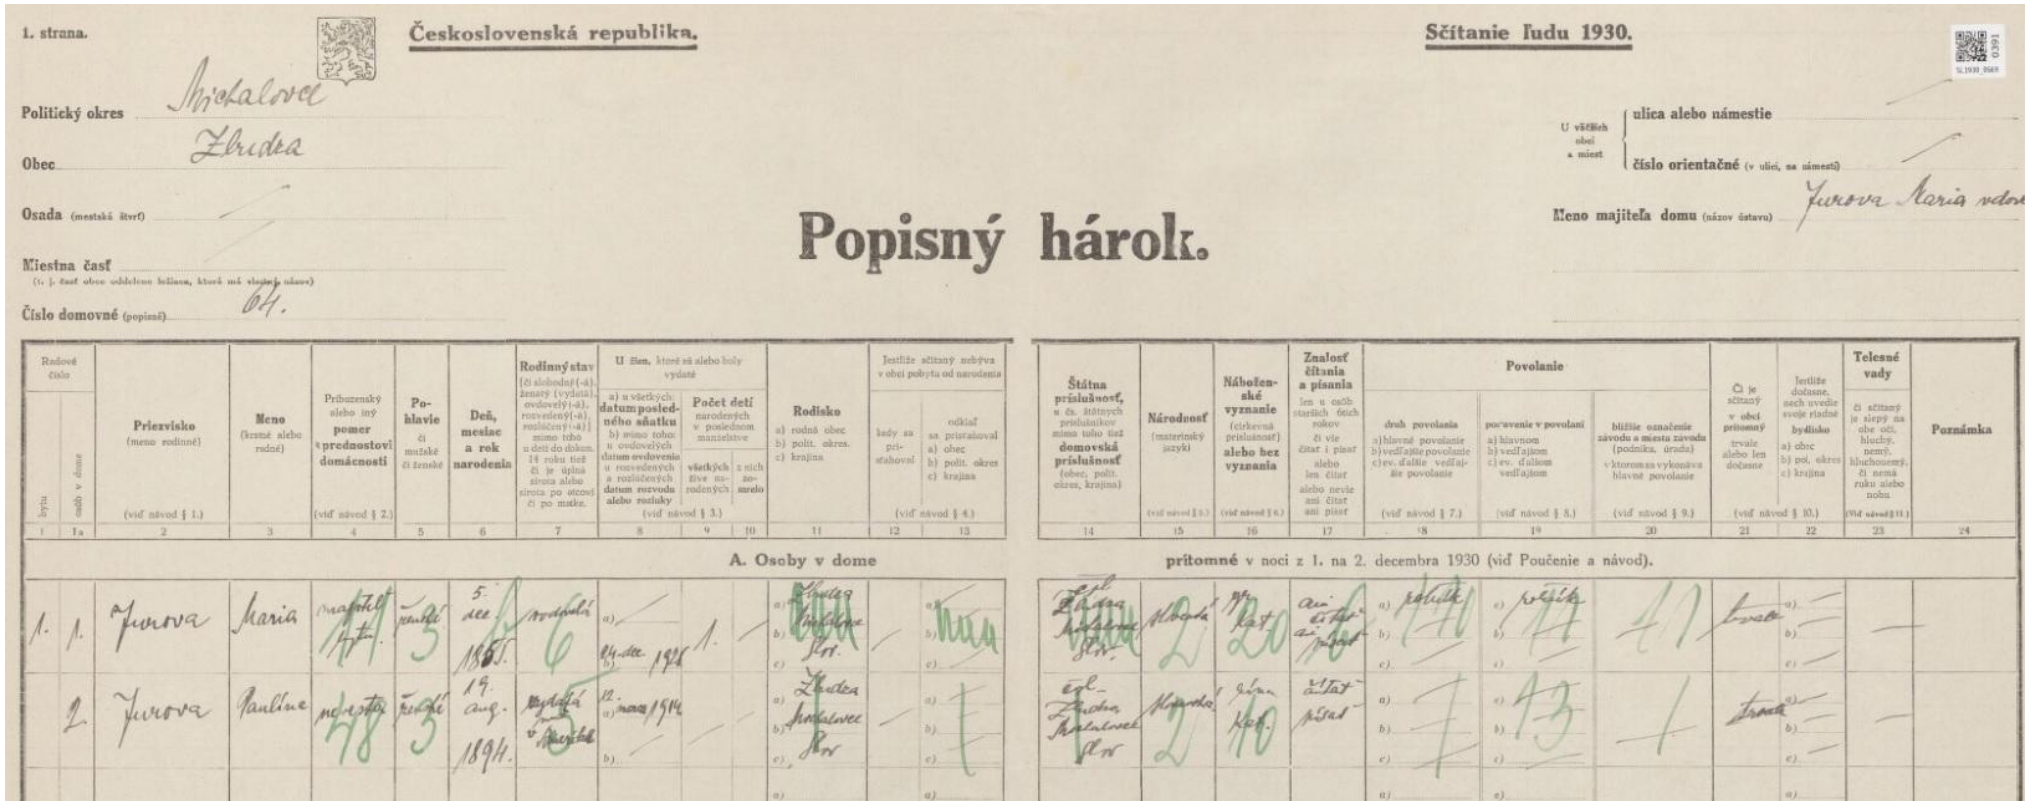 1. strana.
Československá republika.
Sčítanie ľudu 1930.
0391
SL1930_0569
Politický okres Michalovce
Obec Zbudza
Osada (mestská štvrť)
Miestna časť
(t. j. časť obce oddelene ležiaca, ktorá má vlastný názov)
Číslo domovné (popisné) 64.
Popisný hárok.
U väčších obcí a miest
ulica alebo námestie
číslo orientačné (v ulici, na námestí)
Meno majiteľa domu (názov ústavu) Jurova Maria vdova
Radové číslo
bytu
osôb v dome
Priezvisko
(meno rodinné)
(viď návod § 1.)
Meno
(krstné alebo rodné)
Príbuzenský alebo iný pomer k prednostovi domácnosti
(viď návod § 2.)
Pohlavie
či mužské či ženské
Deň, mesiac a rok narodenia
Rodinný stav
[či slobodný (-á), ženatý (vydatá), ovdovelý (-á), rozvedený (-á), rozlúčený (-á)] mimo toho u detí do dokon. 14 roku tiež či je úplná sirota alebo sirota po otcovi či po matke.
U žien, ktoré sú alebo boly vydaté
a) u všetkých: datum posledného sňatku
b) mimo toho: u ovdovelých datum ovdovenia u rozvedených a rozlúčených datum rozvodu alebo rozluky
Počet detí
narodených v poslednom manželstve
všetkých žive narodených
z nich zomrelo
(viď návod § 3.)
Rodisko
a) rodná obec
b) polit. okres
c) krajina
Jestliže sčítaný nebýva v obci pobytu od narodenia
kedy sa prisťahoval
odkiaľ sa prisťahoval
a) obec
b) polit. okres
c) krajina
(viď návod § 4.)
Štátna príslušnosť,
u čs. štátnych príslušníkov mimo toho tiež
domovská príslušnosť
(obec, polit. okres, krajina)
Národnosť
(materinský jazyk)
(viď návod § 5.)
Náboženské vyznanie
(cirkevná príslušnosť)
alebo bez vyznania
(viď návod § 6.)
Znalosť čítania a písania
len u osôb starších 6tich rokov
či vie čítať i písať
alebo len čítať
alebo nevie ani čítať ani písať
Povolanie
druh povolania
a) hlavné povolanie
b) vedľajšie povolanie
c) ev. ďalšie vedľajšie povolanie
(viď návod § 7.)
postavenie v povolaní
a) hlavnom
b) vedľajšom
c) ev. ďalšom vedľajšom
(viď návod § 8.)
bližšie označenie závodu a miesta závodu (podniku, úradu)
v ktorom sa vykonáva hlavné povolanie
(viď návod § 9.)
Či je sčítaný v obci prítomný
trvale alebo len dočasne
Jestliže dočasne, nech uvedie svoje riadné bydlisko
a) obec
b) pol. okres
c) krajina
(viď návod § 10.)
Telesné vady
či sčítaný je slepý na obe oči, hluchý, nemý, hluchonemý, či nemá ruku alebo nohu
(Viď návod § 11.)
Poznámka
1 1a 2 3 4 5 6 7 8 9 10 11 12 13 14 15 16 17 18 19 20 21 22 23 24
A. Osoby v dome prítomné v noci z 1. na 2. decembra 1930 (viď Poučenie a návod).
1. 1. Jurova Maria ženské 5. dec 1855. vdovelá 24. dec 1928 1. Zbudza Michalovce Slov. čsl. Zbudza Michalovce Slov. slovenská gr. kat ani čítať ani písať roľník roľník trvale
3 6 2 20 6 41
2. Jurova Paulína nevesta ženské 19. aug. 1894. vydatá muž v Amerike 12. marca 1914 Zbudza Michalovce Slov čsl. Zbudza Michalovce Slov slovenská rím. kat. čítať písať trvale
48 3 5 2 10 13